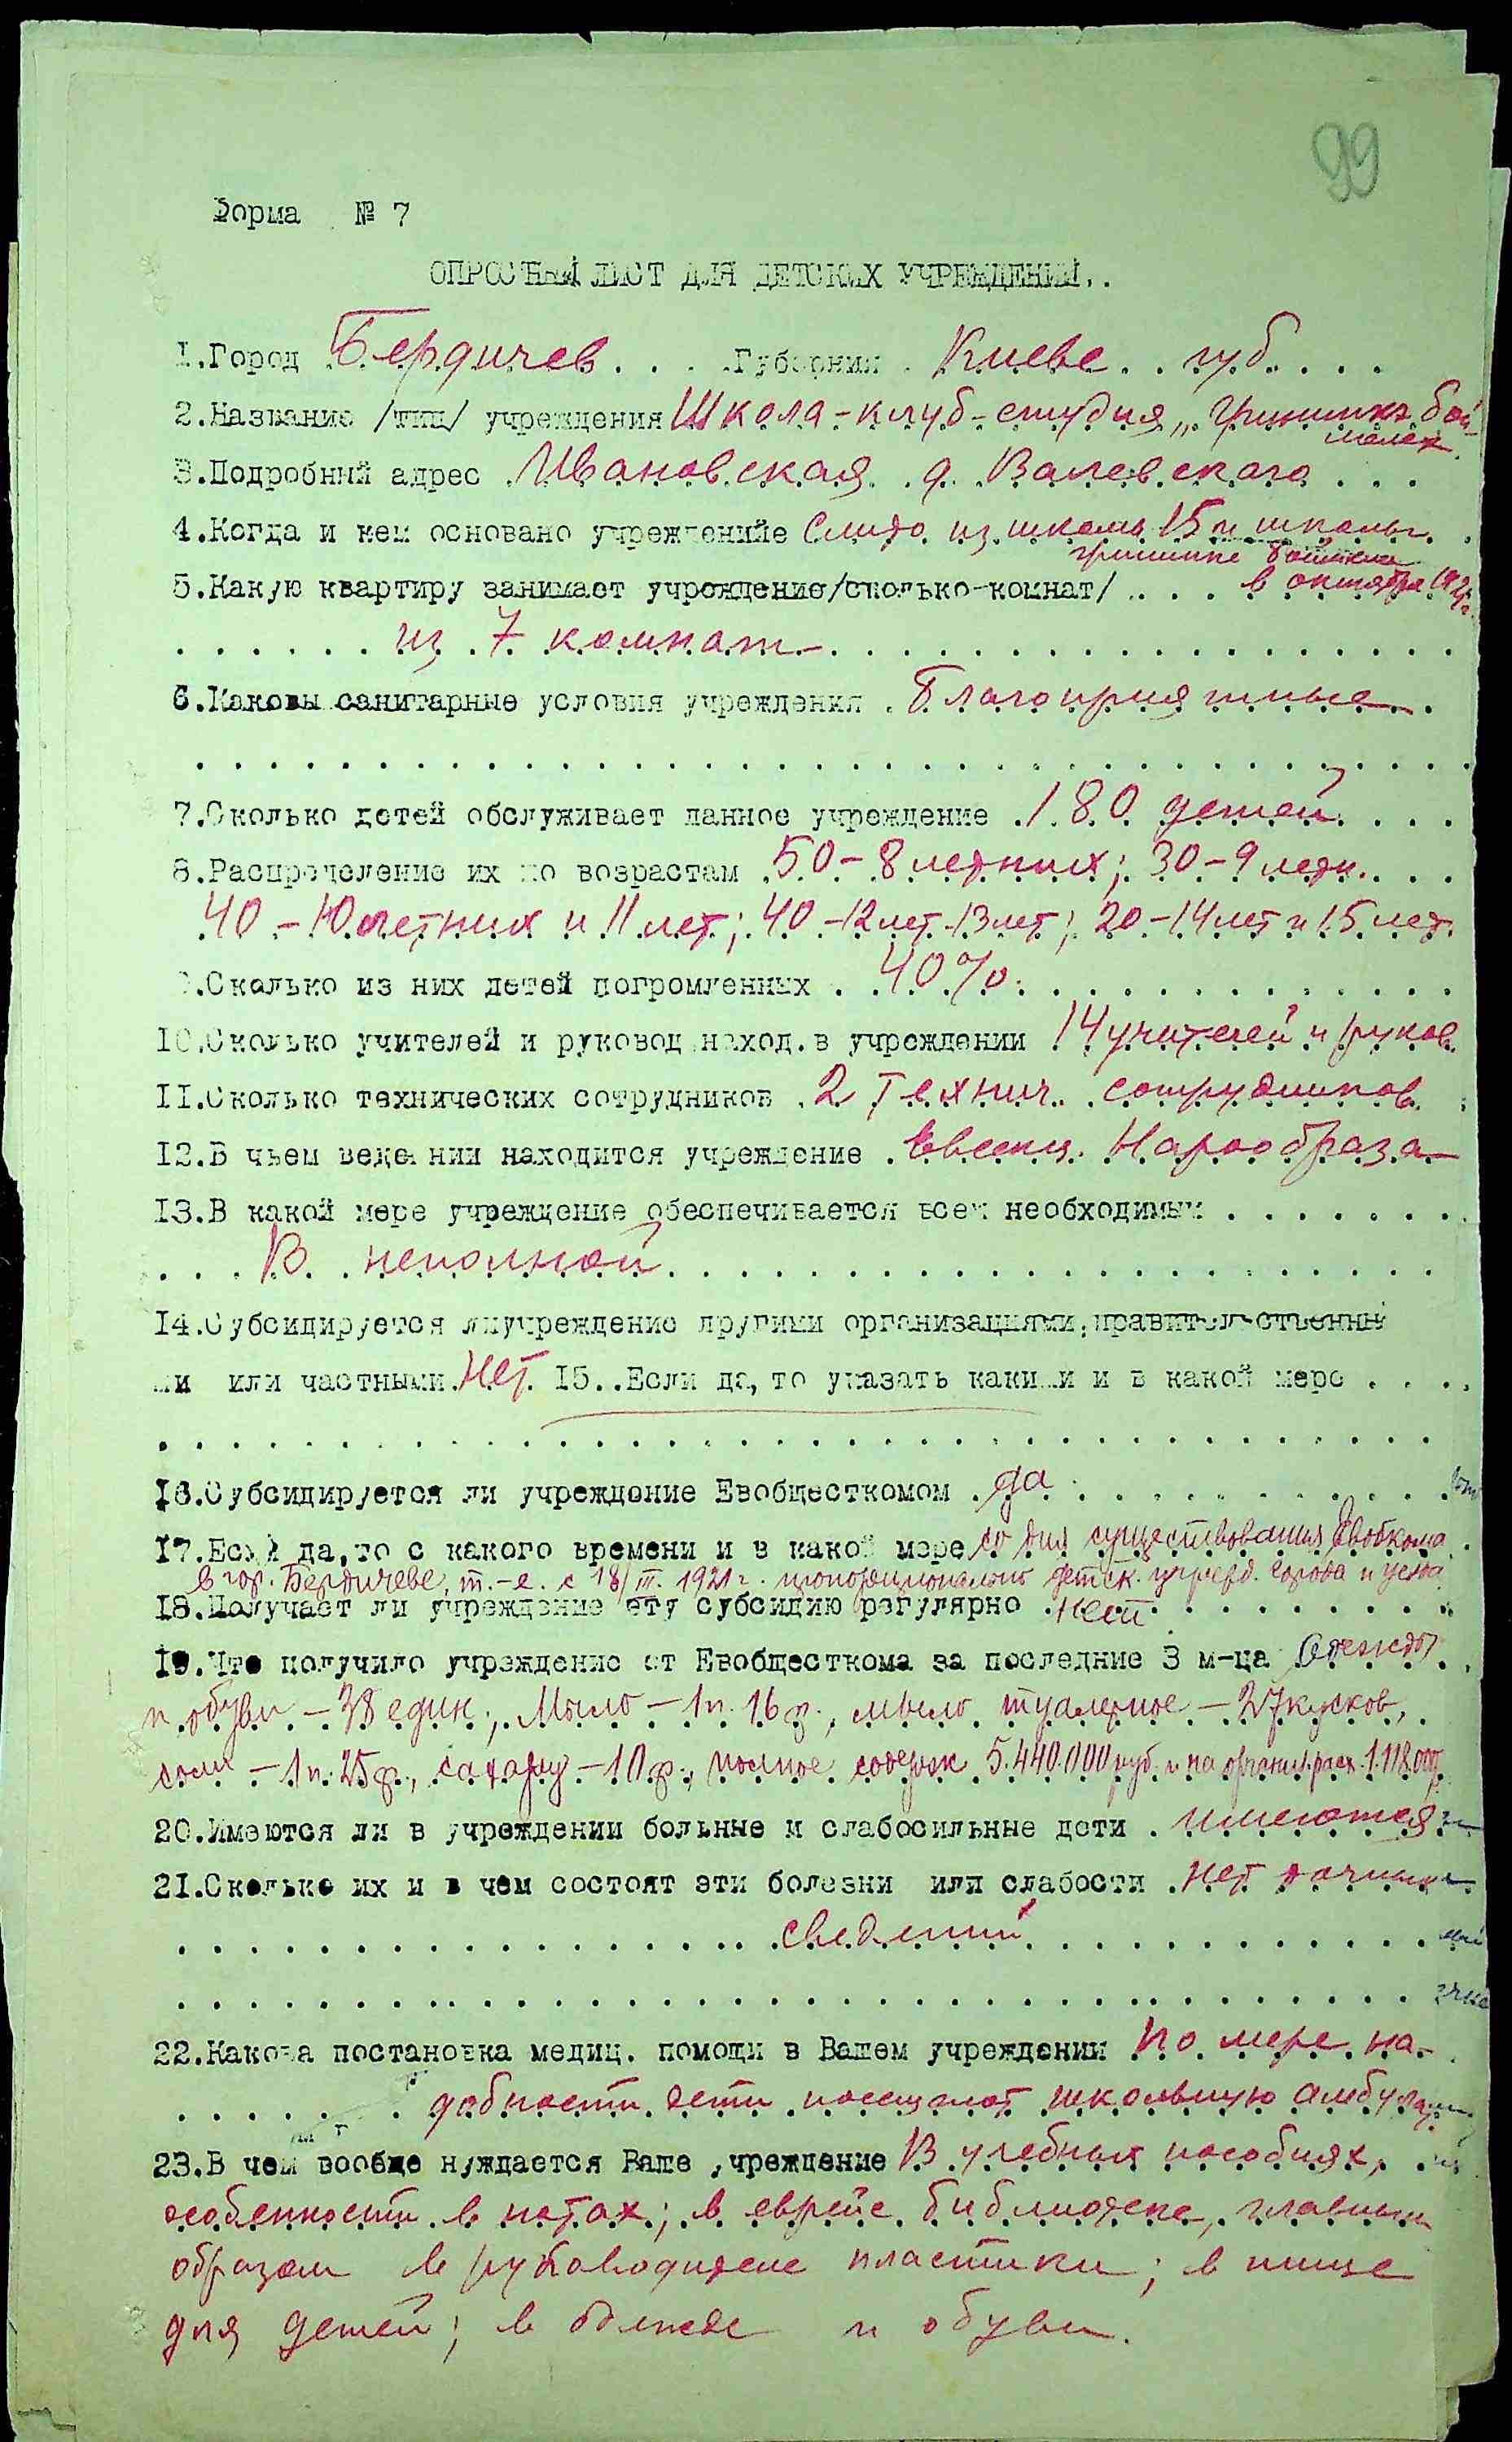 99
Форма № 7
ОПРОСНЫЙ ЛИСТ ДЛЯ ДЕТСКИХ УЧРЕЖДЕНИЙ..
1.Город Бердичев. . . .Губерния . Киевс. . губ. . . .
2.Название /тип/ учреждения Школа-клуб-студия „Грининке бой-
мелех
3.Подробный адрес .Ивановская. .д. Валевского . . .
4.Когда и кем основано учреждение Слито из школы 15 и школы.
грининке боймелех
5.Какую квартиру занимает учреждение/сколько-комнат/ . . . в октябре 1921г.
. . . . . . из .7 комнат. . . . . . . . . . . . . . . . . .
6.Каковы санитарные условия учреждения . Благоприятные. .
. . . . . . . . . . . . . . . . . . . . . . . . . . . . . . . . . . .
7.Сколько детей обслуживает данное учреждение .180 детей. . . .
8.Распределение их по возрастам .50-8 летних; 30-9 летн. . . .
40 - 10 летних и 11 лет; 40 -12 лет -13 лет; 20 -14 лет и 15 лет.
9.Сколько из них детей погромленных . .40%. . . . . . . . . . . . .
10.Сколько учителей и руковод наход. в учреждении 14 учителей и руков.
11.Сколько технических сотрудников .2 технич. . сотрудников.
12.В чьем ведении находится учреждение .Евсекц. Наробраза
13.В какой мере учреждение обеспечивается всем необходимым . . . . . . .
. . . В .неполной. . . . . . . . . . . . . . . . . . . . . .
14.Субсидируется ли учреждение другими организациями, правительственны
ми или частными.Нет. 15. .Если да, то указать какими и в какой мере . . . .
. . . . . . . . . . . . . . . . . . . . . . . . . . . . . . . . . . .
16.Субсидируется ли учреждение Евобщесткомом .да. . . . . . . . . . . .
17.Если да,то с какого времени и в какой мере со дня существования Евобкома
в гор. Бердичеве, т.-е. с 18/III. 1921 г. пропорционально детск. учрежд. города и уезда
18.Получает ли учреждение эту субсидию регулярно .нет. . . . . . . . . .
19.Что получило учреждение от Евобщесткома за последние 3 м-ца Одежды
и обуви - 38 един.; Мыло - 1 п. 16 ф., мыло туалетное - 27 кусков,
соли - 1 п. 25 ф., сахару - 10 ф., полное содерж 5.440.000 руб. и на организ.расх. 1.118.000
20.Имеются ли в учреждении больные и слабосильные дети . имеются
21.Сколько их и в чем состоят эти болезни или слабости .нет точных
. . . . . . . . . . . . . . . . .сведений. . . . . . . . . . . .
. . . . . . . . . . . . . . . . . . . . . . . . . . . . . . . . . . .
22.Какова постановка медиц. помощи в Вашем учреждении По мере на-
. . . . . . . добности дети посещают школьную амбулат.
23.В чем вообще нуждается Ваше учреждение В учебных пособиях,
особенности в нотах; в еврейс. библиотеке, главным
образом в руководителе пластики; в пище
для детей; в одежде и обуви.